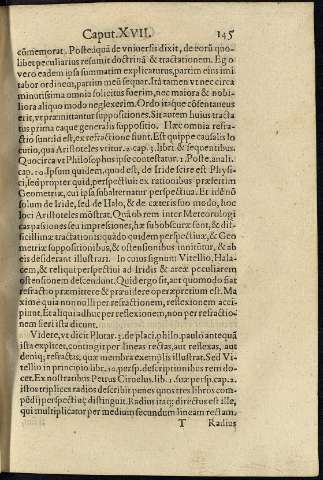 Caput. XVII. 145
cõmemorat. Postea quã de vniuersis dixit, de eorũ quo-
libet peculiarius resumit doctrinã & tractationem. Ego
vero eadem ipsa summatim explicaturus, partim eius imi
tabor ordinem, partim meũ sequar. Itã tamen vt nec circa
minutissima omnia solicitus fuerim, nec maiora & nobi-
liora aliquo modo neglexerim. Ordo itaque cõsentaneus
erit, vt præmittantur suppositiones. Sit autem huius tracta
tus prima caque generalis suppositio. Hæc omnia refra-
ctio sunt: id est, ex refractione fiunt. Est quippe causalis lo
cutio, qua Aristoteles vtitur. 2. cap. 3. libri & sequentibus.
Quocirca vt Philosophus ipse contestatur. 1. Poste. anali.
cap. 10. Ipsum quidem, quod est, de Iride scire est Physi-
ci, sed propter quid, perspectiui: ex rationibus præsertim
Geometræ, cui ipsa subalternatur perspectiua. Et id eñ nõ
solum de Iride, sed de Halo, & de cæteris suo modo, hoc
loci Aristoteles mõstrat. Quã ob rem inter Meteorologi
cas passiones seu impressiones, hæ subobscuræ sunt, & dif-
ficillimæ tractationis: quãdo quidem perspectiuæ, & Geo
metriæ suppositionibus, & ostensionibus innitũtur, & ab
eis desiderant illustrari. In cuius signum Vitellio, Hala-
cem, & reliqui perspectiui ad Iridis & areæ peculiarem
ostensionem descendunt. Quid ergo sit, aut quomodo fiat
refractio præmittere & præuidere operæpretium est. Ma
xime quia nonnulli per refractionem, reflexionem acci-
piunt. Et aliqui adhuc per reflexionem, non per refractio-
nem fieri ista dicunt.
Videre, vt dicit Plutar. 3. de placi. philo. paulo ante quã
ista explicet, contingit per lineas rectas, aut reflexas, aut
deniq; refractas, quæ membra exemplis illustrat. Sed Vi-
tellio in principio libr. 10. persp. descriptionibus rem do-
cet. Ex nostratibus Petrus Ciruelus. lib. 1. suæ persp. cap. 2.
istos triplices radios describit penes quos tres libros com-
põdij perspectiuę; distinguit. Radius itaq; directus est ille,
qui multiplicatur per medium secundum lineam rectam.
T Radius